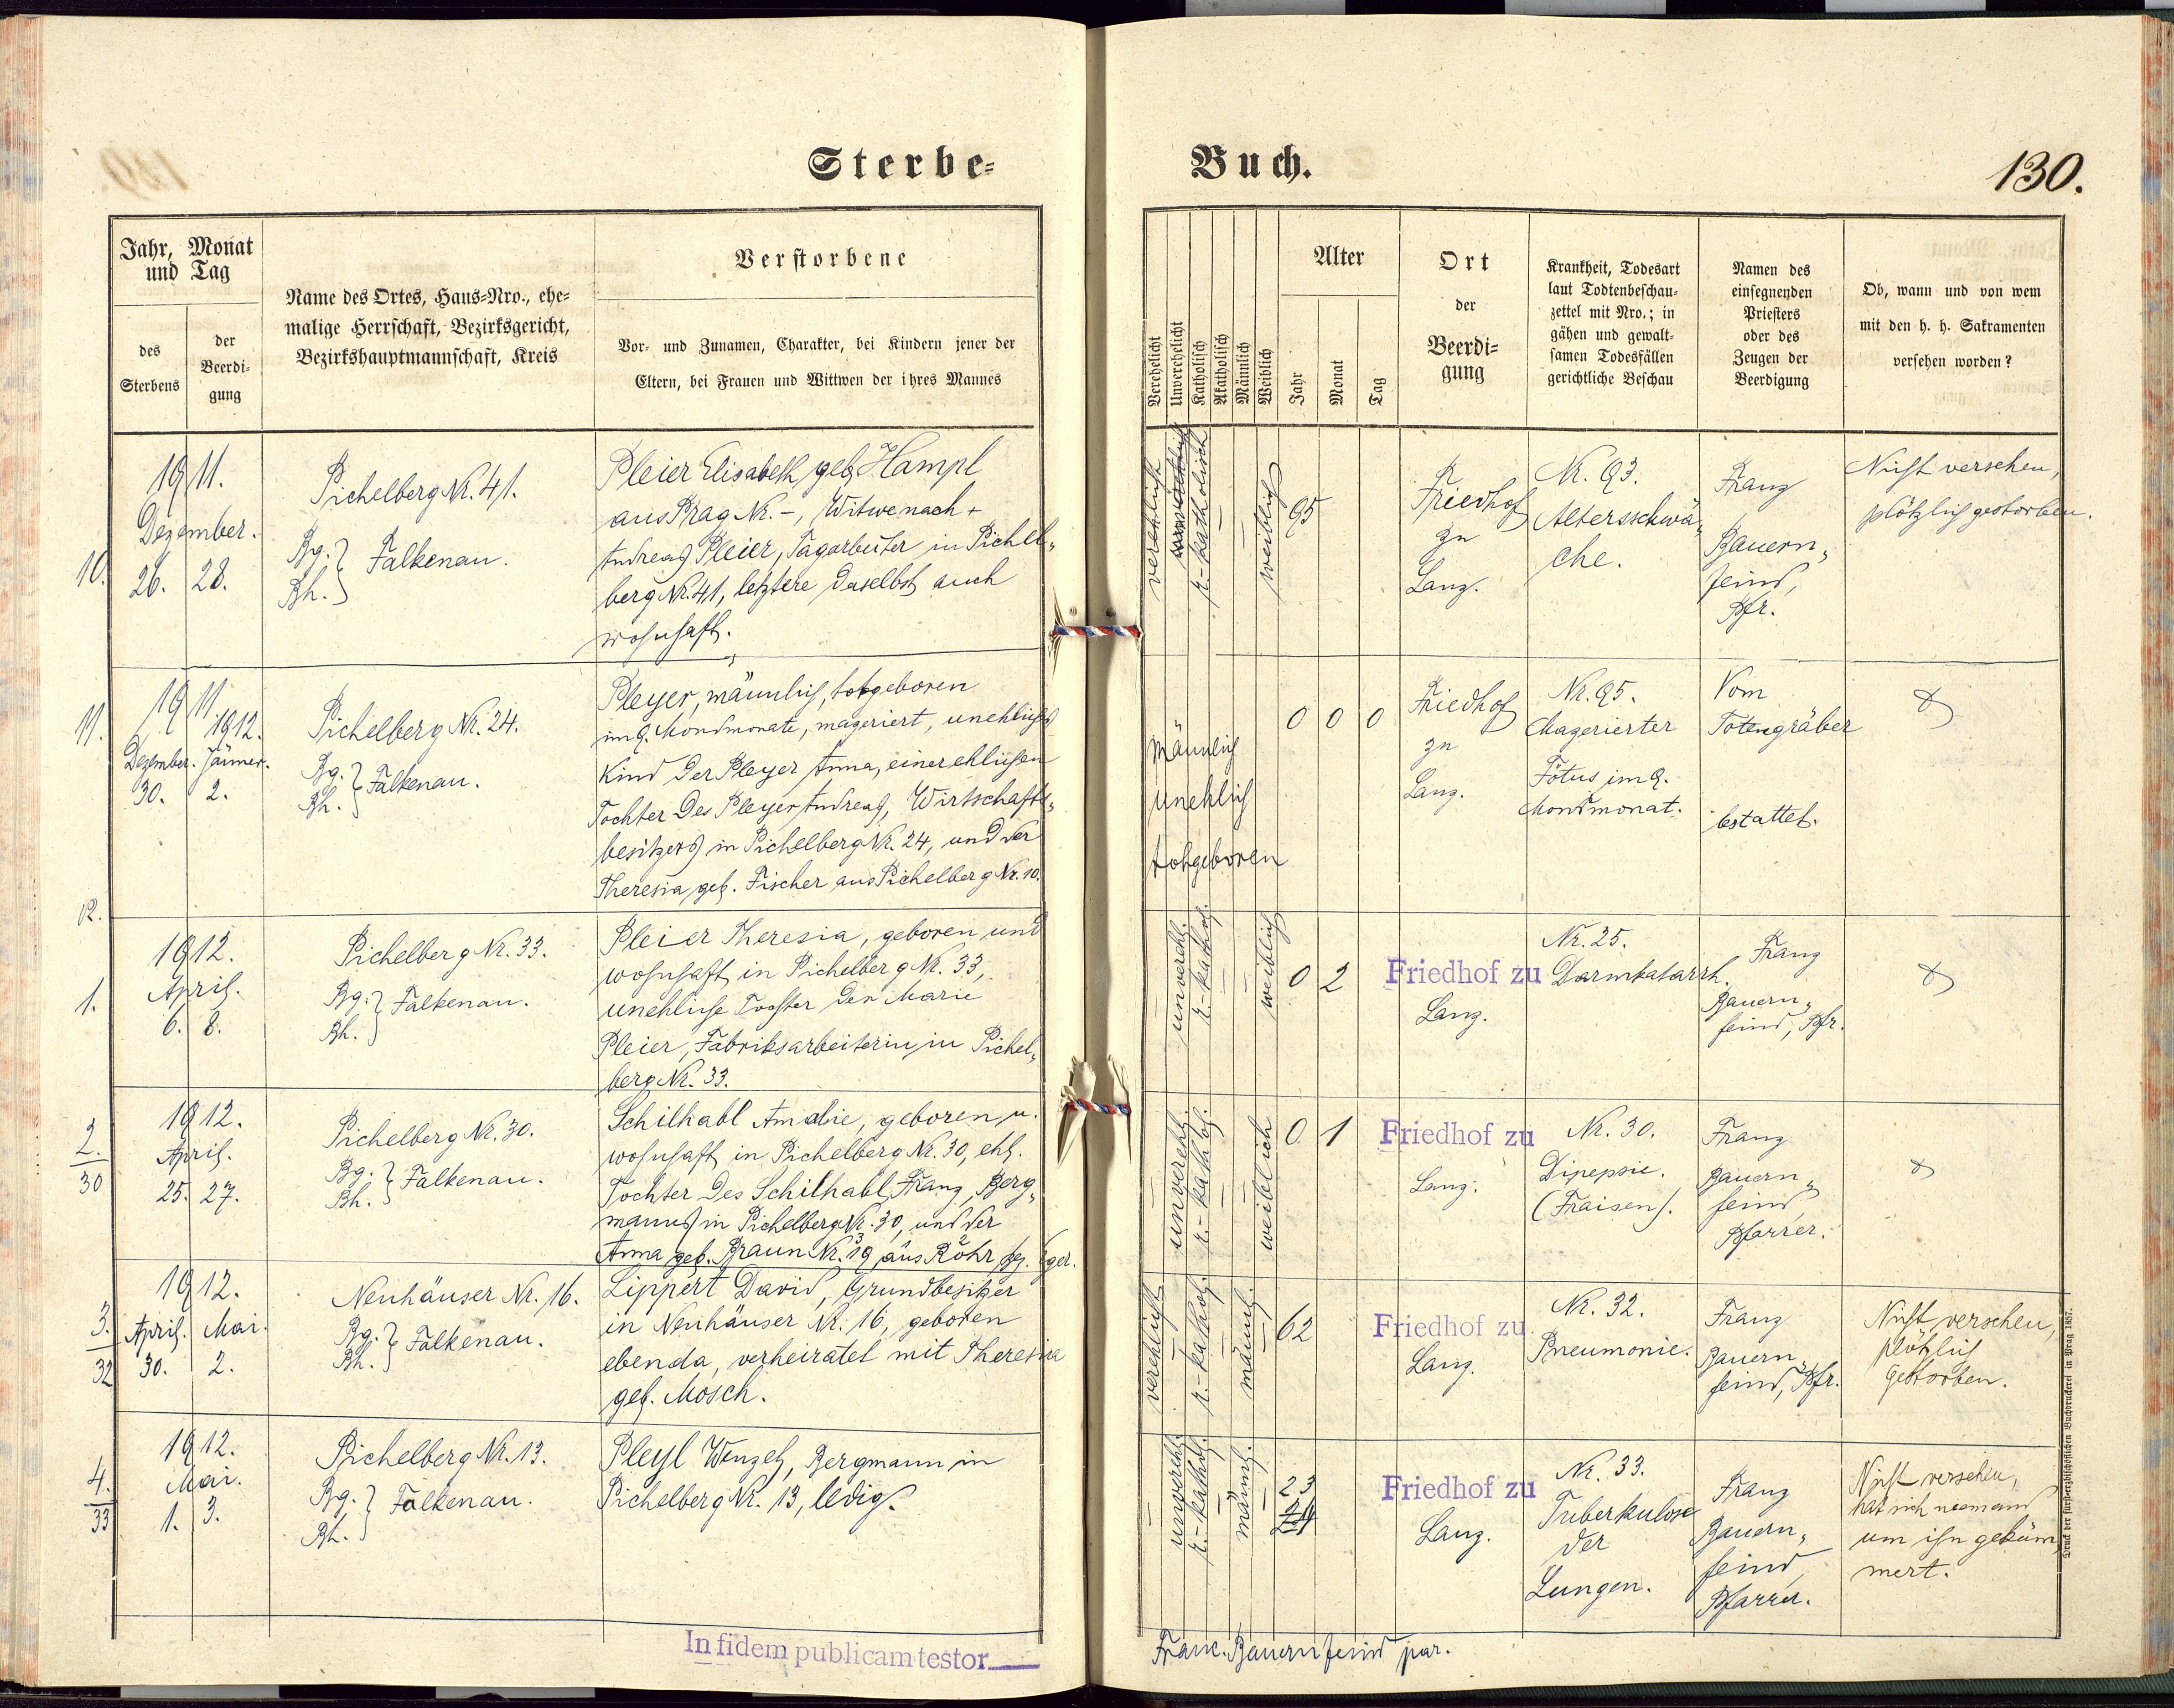 Sterbe-
Jahr, Monat
und Tag
des
Sterbens
der
Beerdi-
gung
Name des Ortes, Haus-Nro., ehe-
malige Herrschaft, Bezirksgericht,
Bezirkshauptmannschaft, Kreis
Verstorbene
Vor- und Zunamen, Charakter, bei Kindern jener der
Eltern, bei Frauen und Wittwen der ihres Mannes
10.
1911.
Dezember.
26. 28.
Pichelberg Nr. 41.
Bg. } Falkenau.
Bh.
Pleier Elisabeth, geb. Hampl
aus Prag Nr. -, Witwe nach +
Andreas Pleier, Tagarbeiter in Pichel-
berg Nr. 41, letztere daselbst auch
wohnhaft.
11.
1911.
1912.
Dezember. Jänner.
30. 2.
Pichelberg Nr. 24.
Bg. } Falkenau.
Bh.
Pleyer, männlich, totgeboren
im 9. Mondmonate, mazeriert, unehliches
Kind der Pleyer Anna, einer ehlichen
Tochter des Pleyer Andreas, Wirtschafts-
besitzers in Pichelberg Nr. 24, und der
Theresia geb. Fischer aus Pichelberg Nr. 10.
12.
1.
1912.
April.
6. 8.
Pichelberg Nr. 33.
Bg. } Falkenau.
Bh.
Pleier Theresia, geboren und
wohnhaft in Pichelberg Nr. 33,
unehliche Tochter der Marie
Pleier, Fabriksarbeiterin in Pichel-
berg Nr. 33.
2.
30
1912.
April.
25. 27.
Pichelberg Nr. 30.
Bg. } Falkenau.
Bh.
Schilhabl Amalie, geboren u.
wohnhaft in Pichelberg Nr. 30, ehl.
Tochter des Schilhabl Franz, Berg-
manns in Pichelberg Nr. 30, und der
Anna geb. Braun Nr. 19 aus Rohr Bg. Eger.
3.
32
1912.
April. Mai.
30. 2.
Neuhäuser Nr. 16.
Bg. } Falkenau.
Bh.
Lippert David, Grundbesitzer
in Neuhäuser Nr. 16, geboren
ebenda, verheiratet mit Theresia
geb. Mosch.
4.
33
1912.
Mai.
1. 3.
Pichelberg Nr. 13.
Bg. } Falkenau.
Bh.
Pleyl Wenzel, Bergmann in
Pichelberg Nr. 13, ledig.
In fidem publicam testor
Buch.
130.
Verehelicht
Unverehelicht
Katholisch
Akatholisch
Männlich
Weiblich
Alter
Jahr
Monat
Tag
Ort
der
Beerdi-
gung
Krankheit, Todesart
laut Todtenbeschau-
zettel mit Nro.; in
gähen und gewalt-
samen Todesfällen
gerichtliche Beschau
Namen des
einsegnenden
Priesters
oder des
Zeugen der
Beerdigung
Ob, wann und von wem
mit den h. h. Sakramenten
versehen worden?
verehlicht
r.-katholisch
weiblich
95
Friedhof
zu
Lanz.
Nr. 93.
Altersschwä-
che.
Franz
Bauern-
feind,
Pfr.
Nicht versehen,
plötzlich gestorben.
männlich
unehlich
totgeboren
0 0 0
Friedhof
zu
Lanz.
Nr. 95.
Mazerierter
Fötus im 9.
Mondmonat.
Vom
Totengräber
bestattet.
unverehl.
r.-kathol.
weiblich
0 2
Friedhof zu
Lanz.
Nr. 25.
Darmkatarrh.
Franz
Bauern-
feind, Pfr.
unverehl.
r.-kathol.
weiblich
0 1
Friedhof zu
Lanz.
Nr. 30.
Dipepsie.
(Fraisen).
Franz
Bauern-
feind
Pfarrer.
verehlicht
r.-kathol.
männl.
62
Friedhof zu
Lanz.
Nr. 32.
Pneumonie.
Franz
Bauern-
feind, Pfr.
Nicht versehen,
plötzlich
gestorben.
unverehl.
r.-kathol.
männl.
23
Friedhof zu
Lanz.
Nr. 33.
Tuberkulose
der
Lungen.
Franz
Bauern-
feind
Pfarrer.
Nicht versehen,
hat sich niemand
um ihn geküm-
mert.
Franc. Bauernfeind par.
Druck der fürsterzbischöflichen Buchdruckerei in Prag 1857.